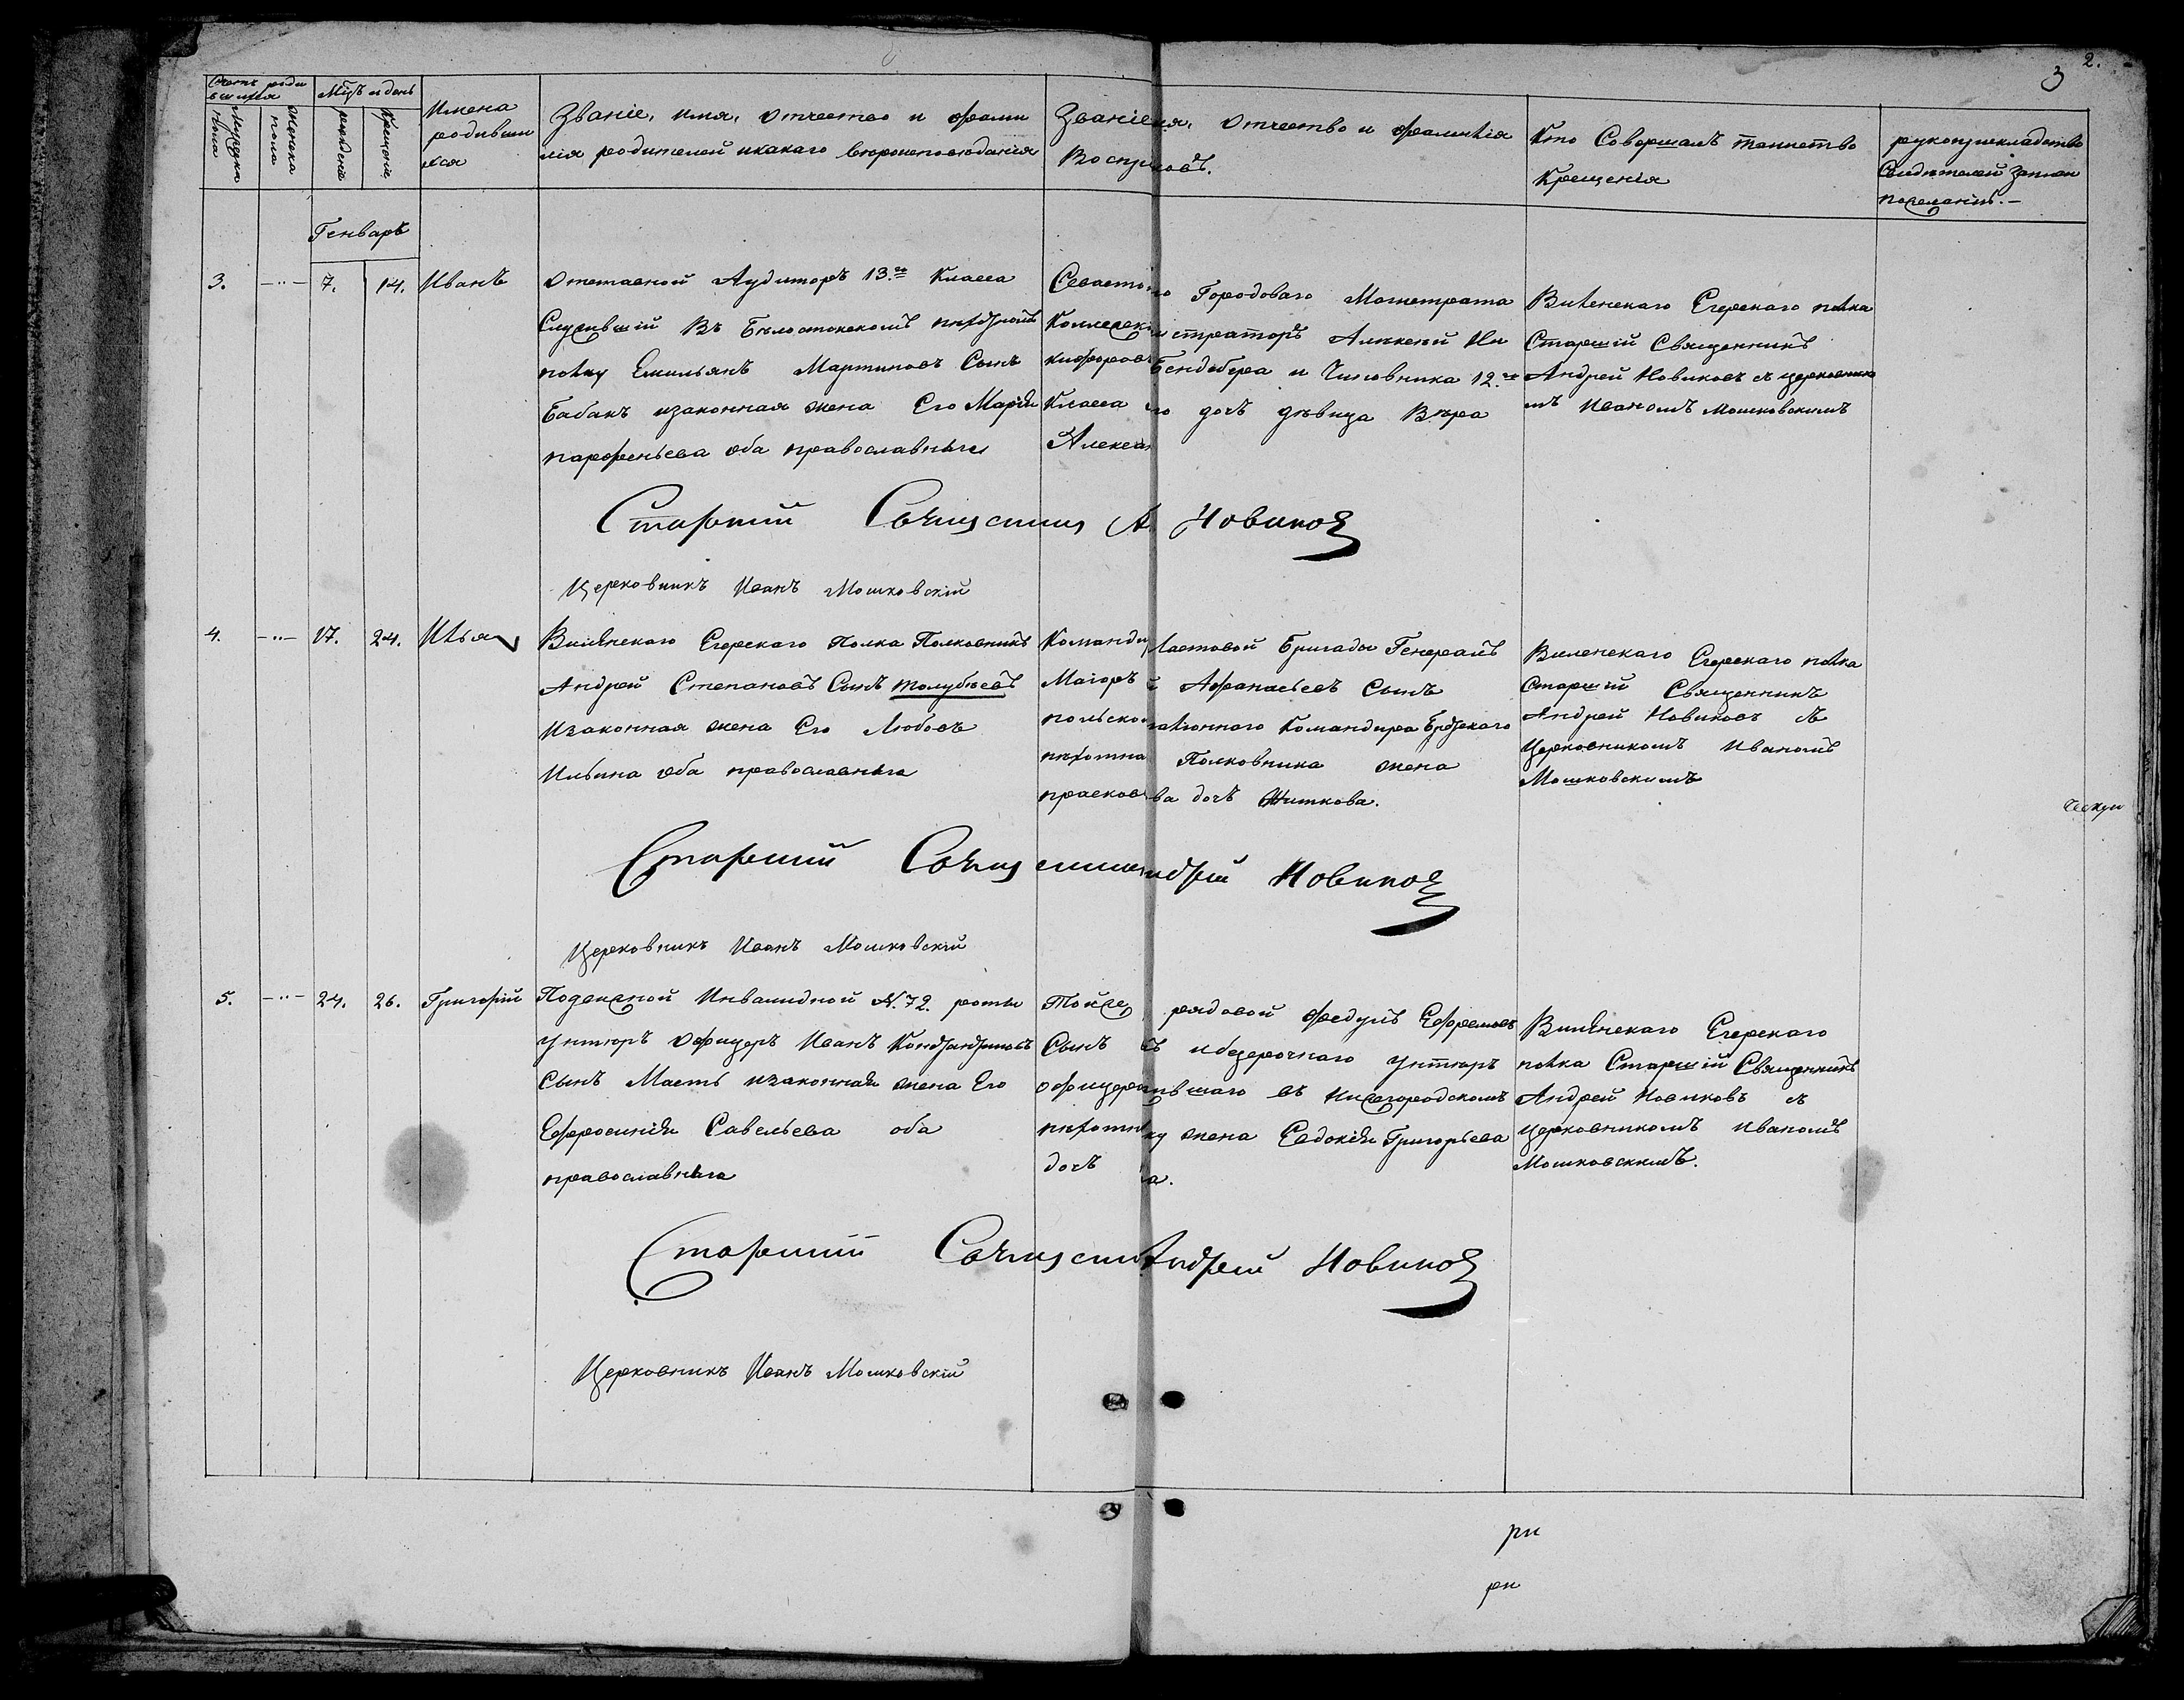 2.
3
Счетъ роди
вшихся
Мужеска
пола
Женска
пола
Мѣцъ и день
рожденіе
Крещеніе
Имена
родивши
хся
Званіе, имя, отчество и фами
лія родителей икакаго вѣроисповѣданія
Званіе имя, отчество и фамилія
Воспр ковъ.
Кто Совершалъ таинство
Крещенія
рукоприкладство
Свидѣтелей
Генварь
3. 7. 14. Иванъ
Отставной Аудиторъ 13.го Класса
Служившій Въ Бѣлостокскомъ пѣхотномъ
полку Емильянъ Мартиновъ Сынъ
Бабакъ изаконная жена Его Марія
парфеньева оба православныя
Севасто го Городоваго Магистрата
Коллежск истраторъ Алексѣй Ни
кифоров Бендебера и Чиновника 12.го
Класса го дочь дѣвица Вѣра
Алекса
Виленскаго Егерскаго полка
Старшій Священникъ
Андрей Новиковъ съ церковнико
мъ Иваномъ Мошковскимъ
Старшій Священникъ А. Новиковъ
Церковникъ Иванъ Мошковскій
4. 17. 24. Илья
Виленскаго Егерскаго Полка Полковникъ
Андрей Степановъ Сынъ толубѣевъ
Изаконная жена Его Любовь
Ильина оба православныя
Команди Ластовой Бригады Генералъ
Маіоръ й Афанасьевъ Сынъ
польско таліоннаго Командира Брестскаго
пѣхотна Полковника жена
прасков ва дочь Житкова.
Виленскаго Егерскаго полка
Старшій Священникъ
Андрей Новиковъ съ
Церковникомъ Иваномъ
Мошковскимъ
Старшій Священникъ Андрей Новиковъ
Церковникъ Иванъ Мошковскій
5. 24. 26. Григорій
Подвижной Инвалидной №. 72. роты
Унтеръ Офицеръ Иванъ Кондратьевъ
Сынъ Масть изаконная жена Его
Ефросинія Савельева оба
православныя
Тойже рядовой Федулъ Ефремовъ
Сынъ въ ибезсрочнаго Унтеръ
офицера ившаго въ Нижегородскомъ
пѣхотн ку жена Евдокія Григорьева
дочь а.
Виленскаго Егерскаго
полка Старшій Священникъ
Андрей Новиковъ съ
церковникомъ Иваномъ
Мошковскимъ.
Старшій Священникъ Андрей Новиковъ
Церковникъ Иванъ Мошковскій
ри
ри